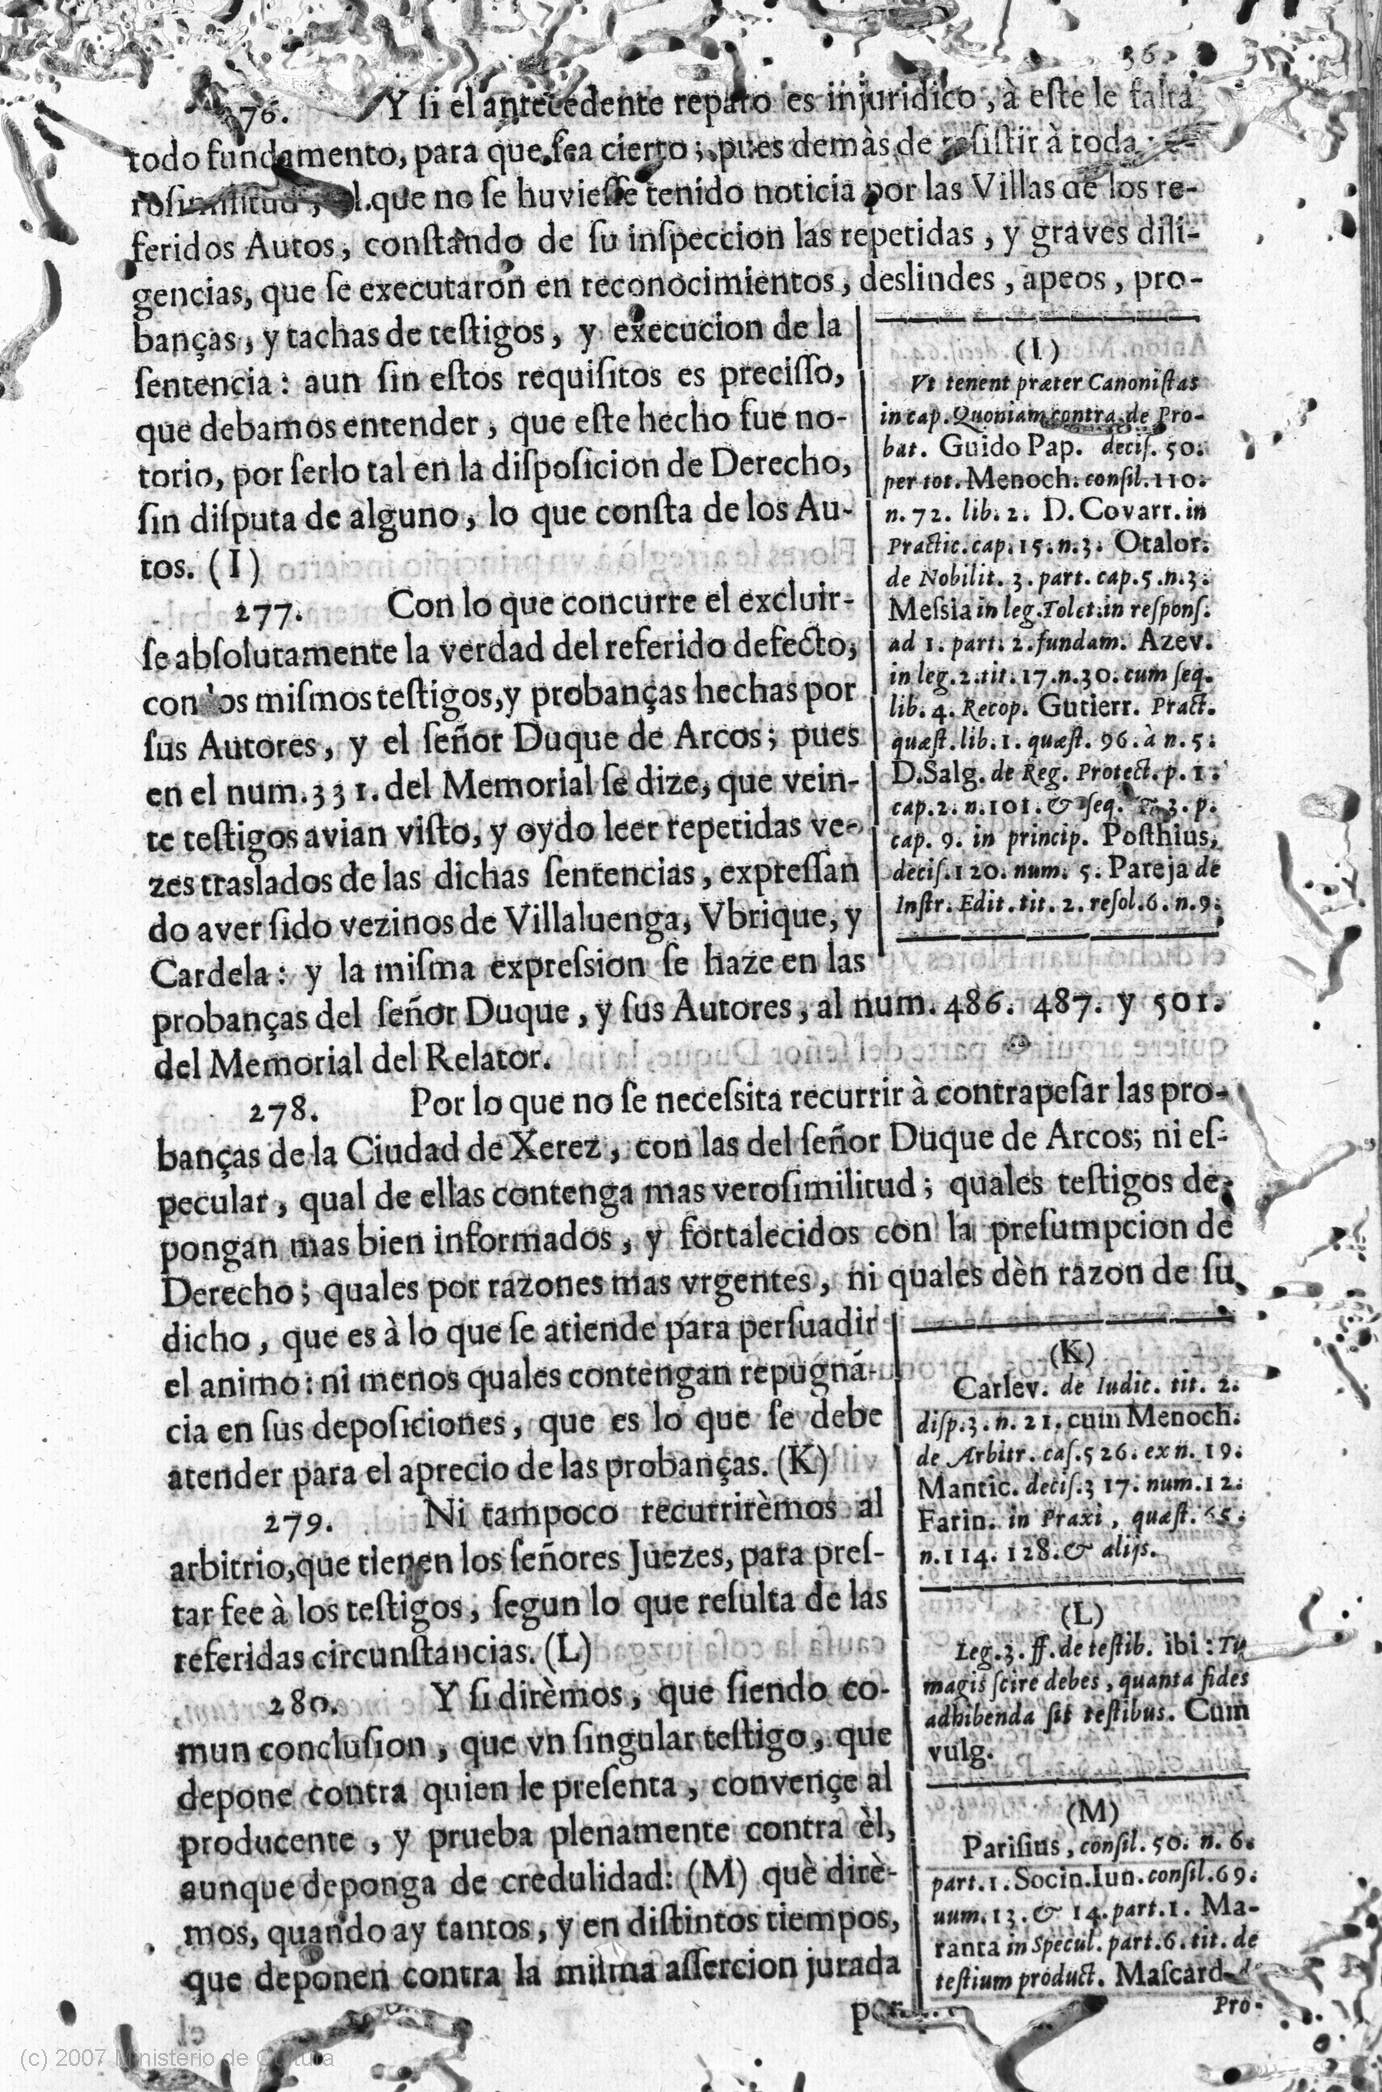 36.
276. Y si el antecedente reparo es injuridico, à este le falta
todo fundamento, para que sea cierto; pues demàs de resistir à toda
rosimilitud, el que no se huviesse tenido noticia por las Villas de los re-
feridos Autos, constando de su inspeccion las repetidas, y graves dili-
gencias, que se executaron en reconocimientos, deslindes, apeos, pro-
banças, y tachas de testigos, y execucion de la
sentencia: aun sin estos requisitos es precisso,
que debamos entender, que este hecho fue no-
torio, por serlo tal en la disposicion de Derecho,
sin disputa de alguno, lo que consta de los Au-
tos. (I)
277. Con lo que concurre el excluir-
se absolutamente la verdad del referido defecto,
con los mismos testigos, y probanças hechas por
sus Autores, y el señor Duque de Arcos; pues
en el num. 331. del Memorial se dize, que vein-
te testigos avian visto, y oydo leer repetidas ve-
zes traslados de las dichas sentencias, expressan
do aver sido vezinos de Villaluenga, Vbrique, y
Cardela: y la misma expression se haze en las
probanças del señor Duque, y sus Autores, al num. 486. 487. y 501.
del Memorial del Relator.
(I)
Vt tenent præter Canonistas
in cap. Quoniam contra, de Pro-
bat. Guido Pap. decis. 50.
per tot. Menoch. consil. 110.
n. 72. lib. 2. D. Covarr. in
Practic. cap. 15. n. 3. Otalor.
de Nobilit. 3. part. cap. 5. n. 3.
Messia in leg. Tolet. in respons.
ad 1. part. 2. fundam. Azev.
in leg. 2. tit. 17. n. 30. cum seq.
lib. 4. Recop. Gutierr. Pract.
quæst. lib. 1. quæst. 96. à n. 5.
D. Salg. de Reg. Protect. p. 1.
cap. 2. n. 101. & seq. & 3. p.
cap. 9. in princip. Posthius,
decis. 120. num. 5. Pareja de
Instr. Edit. tit. 2. resol. 6. n. 9.
278. Por lo que no se necessita recurrir à contrapesar las pro-
banças de la Ciudad de Xerez, con las del señor Duque de Arcos; ni es-
pecular, qual de ellas contenga mas verosimilitud; quales testigos de-
pongan mas bien informados, y fortalecidos con la presumpcion de
Derecho; quales por razones mas vrgentes, ni quales dèn razon de su
dicho, que es à lo que se atiende para persuadir
el animo: ni menos quales contengan repugná-
cia en sus deposiciones, que es lo que se debe
atender para el aprecio de las probanças. (K)
279. Ni tampoco recurrirèmos al
arbitrio, que tienen los señores Juezes, para pres-
tar fee à los testigos, segun lo que resulta de las
referidas circunstancias. (L)
280. Y si dirèmos, que siendo co-
mun conclusion, que vn singular testigo, que
depone contra quien le presenta, convençe al
producente, y prueba plenamente contra èl,
aunque deponga de credulidad: (M) què dirè-
mos, quando ay tantos, y en distintos tiempos,
que deponen contra la misma assercion jurada
por
(K)
Carlev. de Iudic. tit. 2.
disp. 3. n. 21. cum Menoch.
de Arbitr. cas. 526. ex n. 19.
Mantic. decis. 317. num. 12.
Farin. in Praxi, quæst. 65.
n. 114. 128. & alijs.
(L)
Leg. 3. ff. de testib. ibi: Tu
magis scire debes, quanta fides
adhibenda sit testibus. Cum
vulg.
(M)
Parisius, consil. 50. n. 6.
part. 1. Socin. Iun. consil. 69.
num. 13. & 14. part. 1. Ma-
ranta in Specul. part. 6. tit. de
testium product. Mascard.
Pro-
(c) 2007 Ministerio de Cultura